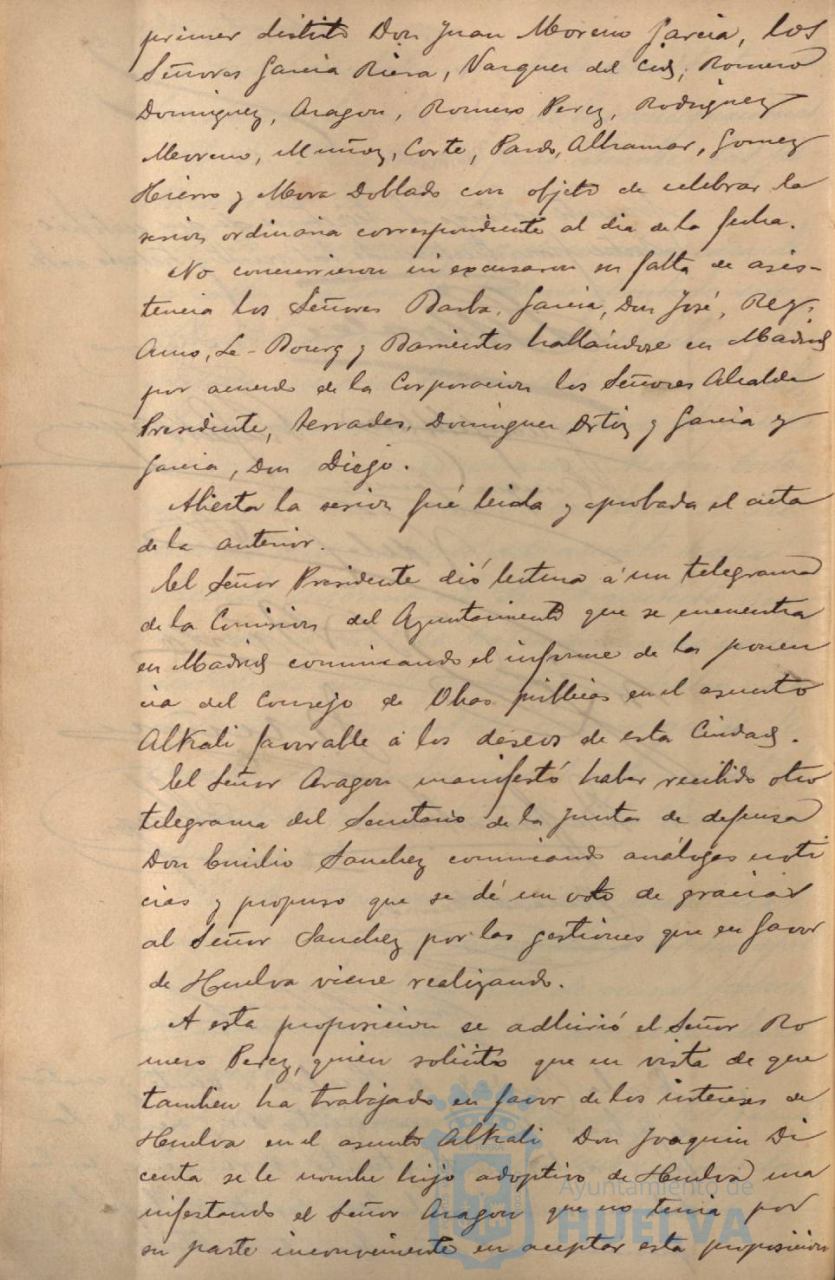 primer distrito Don Juan Moreno Garcia, los
Señores Garcia Riera, Vazquez del Cid, Romero
Dominguez, Aragon, Romero Perez, Rodriguez
Moreno, Muñoz, Corte, Pardo, Alhamar, Gomez
Hierro y Mora Doblado con objeto de celebrar la
sesion ordinaria correspondiente al dia de la fecha.
No concurrieron ni excusaron su falta de asis-
tencia los Señores Barba, Garcia, Don José, Rey,
Amo, Le-Bourg y Barrientos hallándose en Madrid
por acuerdo de la Corporacion los Señores Alcalde
Presidente, Terrades, Dominguez Ortiz y Garcia y
Garcia, Don Diego.
Abierta la sesion fué leida y aprobada el acta
de la anterior.
El Señor Presidente dió lectura á un telegrama
de la Comision del Ayuntamiento que se encuentra
en Madrid comunicando el informe de la ponen
cia del Consejo de Obras públicas en el asunto
Alkali favorable á los deseos de esta Ciudad.
El Señor Aragon manifestó haber recibido otro
telegrama del Secretario de la Junta de defensa
Don Emilio Sanchez comunicando análogas noti
cias y propuso que se dé un voto de gracias
al Señor Sanchez por las gestiones que en favor
de Huelva viene realizando.
A esta proposicion se adhirió el Señor Ro
mero Perez, quien solicitó que en vista de que
tambien ha trabajado en favor de los intereses de
Huelva en el asunto Alkali Don Joaquin Di
centa se le nombre hijo adoptivo de Huelva ma
nifestando el Señor Aragon que no tenia por
su parte inconveniente en aceptar esta proposicion
Ayuntamiento de
HUELVA